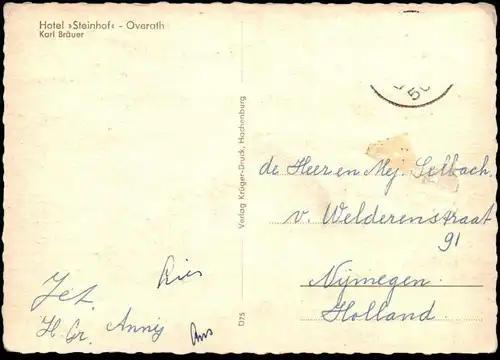 Hotel »Steinhof« - Overath
Karl Bräuer
Verlag Krüger-Druck, Hachenburg
D75
de Heer en Mej. Selbach.
v. Welderenstraat
91
Nijmegen
Holland.
Ries
Jet.
H. Gr. Annij
Ans
50